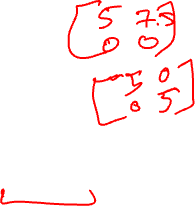 5 7.5
0 0
5 0
0 5